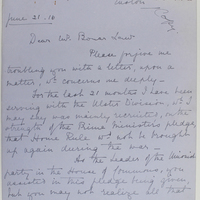 June 21. 16
Dear Mr Bonar Law
Please forgive me
troubling you with a letter, upon a
matter, wh concerns me deeply –
For the last 21 months I have been
serving with the Ulster Division, wh I
may say was mainly recruited, on the
strength of the Prime Minister's pledge
that Home Rule wd not be brought
up again during the war –
As the leader of the Unionist
party in the House of Commons, you
assisted in this pledge being given,
but you may not realize all that